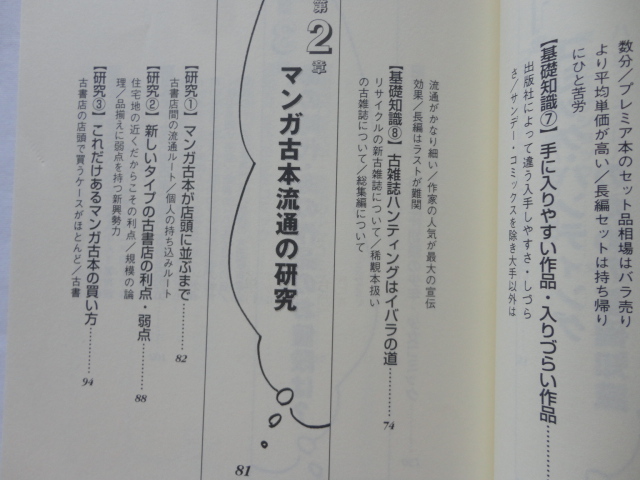 数分／プレミア本のセット品相場はバラ売り
より平均単価が高い／長編セットは持ち帰り
にひと苦労
【基礎知識⑦】手に入りやすい作品・入りづらい作品…………
出版社によって違う入手しやすさ・しづら
さ／サンデー・コミックスを除き大手以外は
流通がかなり細い／作家の人気が最大の宣伝
効果／長編はラストが難関
【基礎知識⑧】古雑誌ハンティングはイバラの道…………74
リサイクルの新古雑誌について／稀覯本扱い
の古雑誌について／総集編について
第2章
マンガ古本流通の研究
81
【研究①】マンガ古本が店頭に並ぶまで…………82
古書店間の流通ルート／個人の持ち込みルート
【研究②】新しいタイプの古書店の利点・弱点…………88
住宅地の近くだからこその利点／規模の論
理／品揃えに弱点を持つ新興勢力
【研究③】これだけあるマンガ古本の買い方…………94
古書店の店頭で買うケースがほとんど／古書